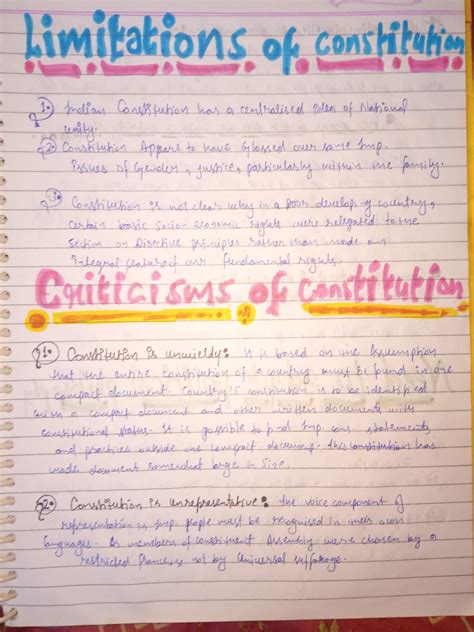 Limitations of constitution
1. Indian Constitution has a centralised idea of National
Unity.
2. Constitution Appear to have Glossed over some Imp.
issues of Gender, justice, particularly within the family.
3. Constitution is not clear why in a poor developing country,
certain basic socio-economic rights were relegated to the
section on Directive principles rather than made an
integral feature of our fundamental rights.
Criticisms of constitution
1. Constitution is unwieldy: It is based on the Assumption
that the entire constitution of a country must be found in one
compact document. Country's constitution is to be identified
with a compact document and other written documents with
constitutional status. It is possible to find Imp cons. statements
and practices outside one compact document. This constitution has
made document somewhat large in size.
2. Constitution is unrepresentative: the voice component of
representation is Imp. people must be recognised in their own
languages. As members of constituent Assembly were chosen by a
restricted franchise not by Universal suffrage.